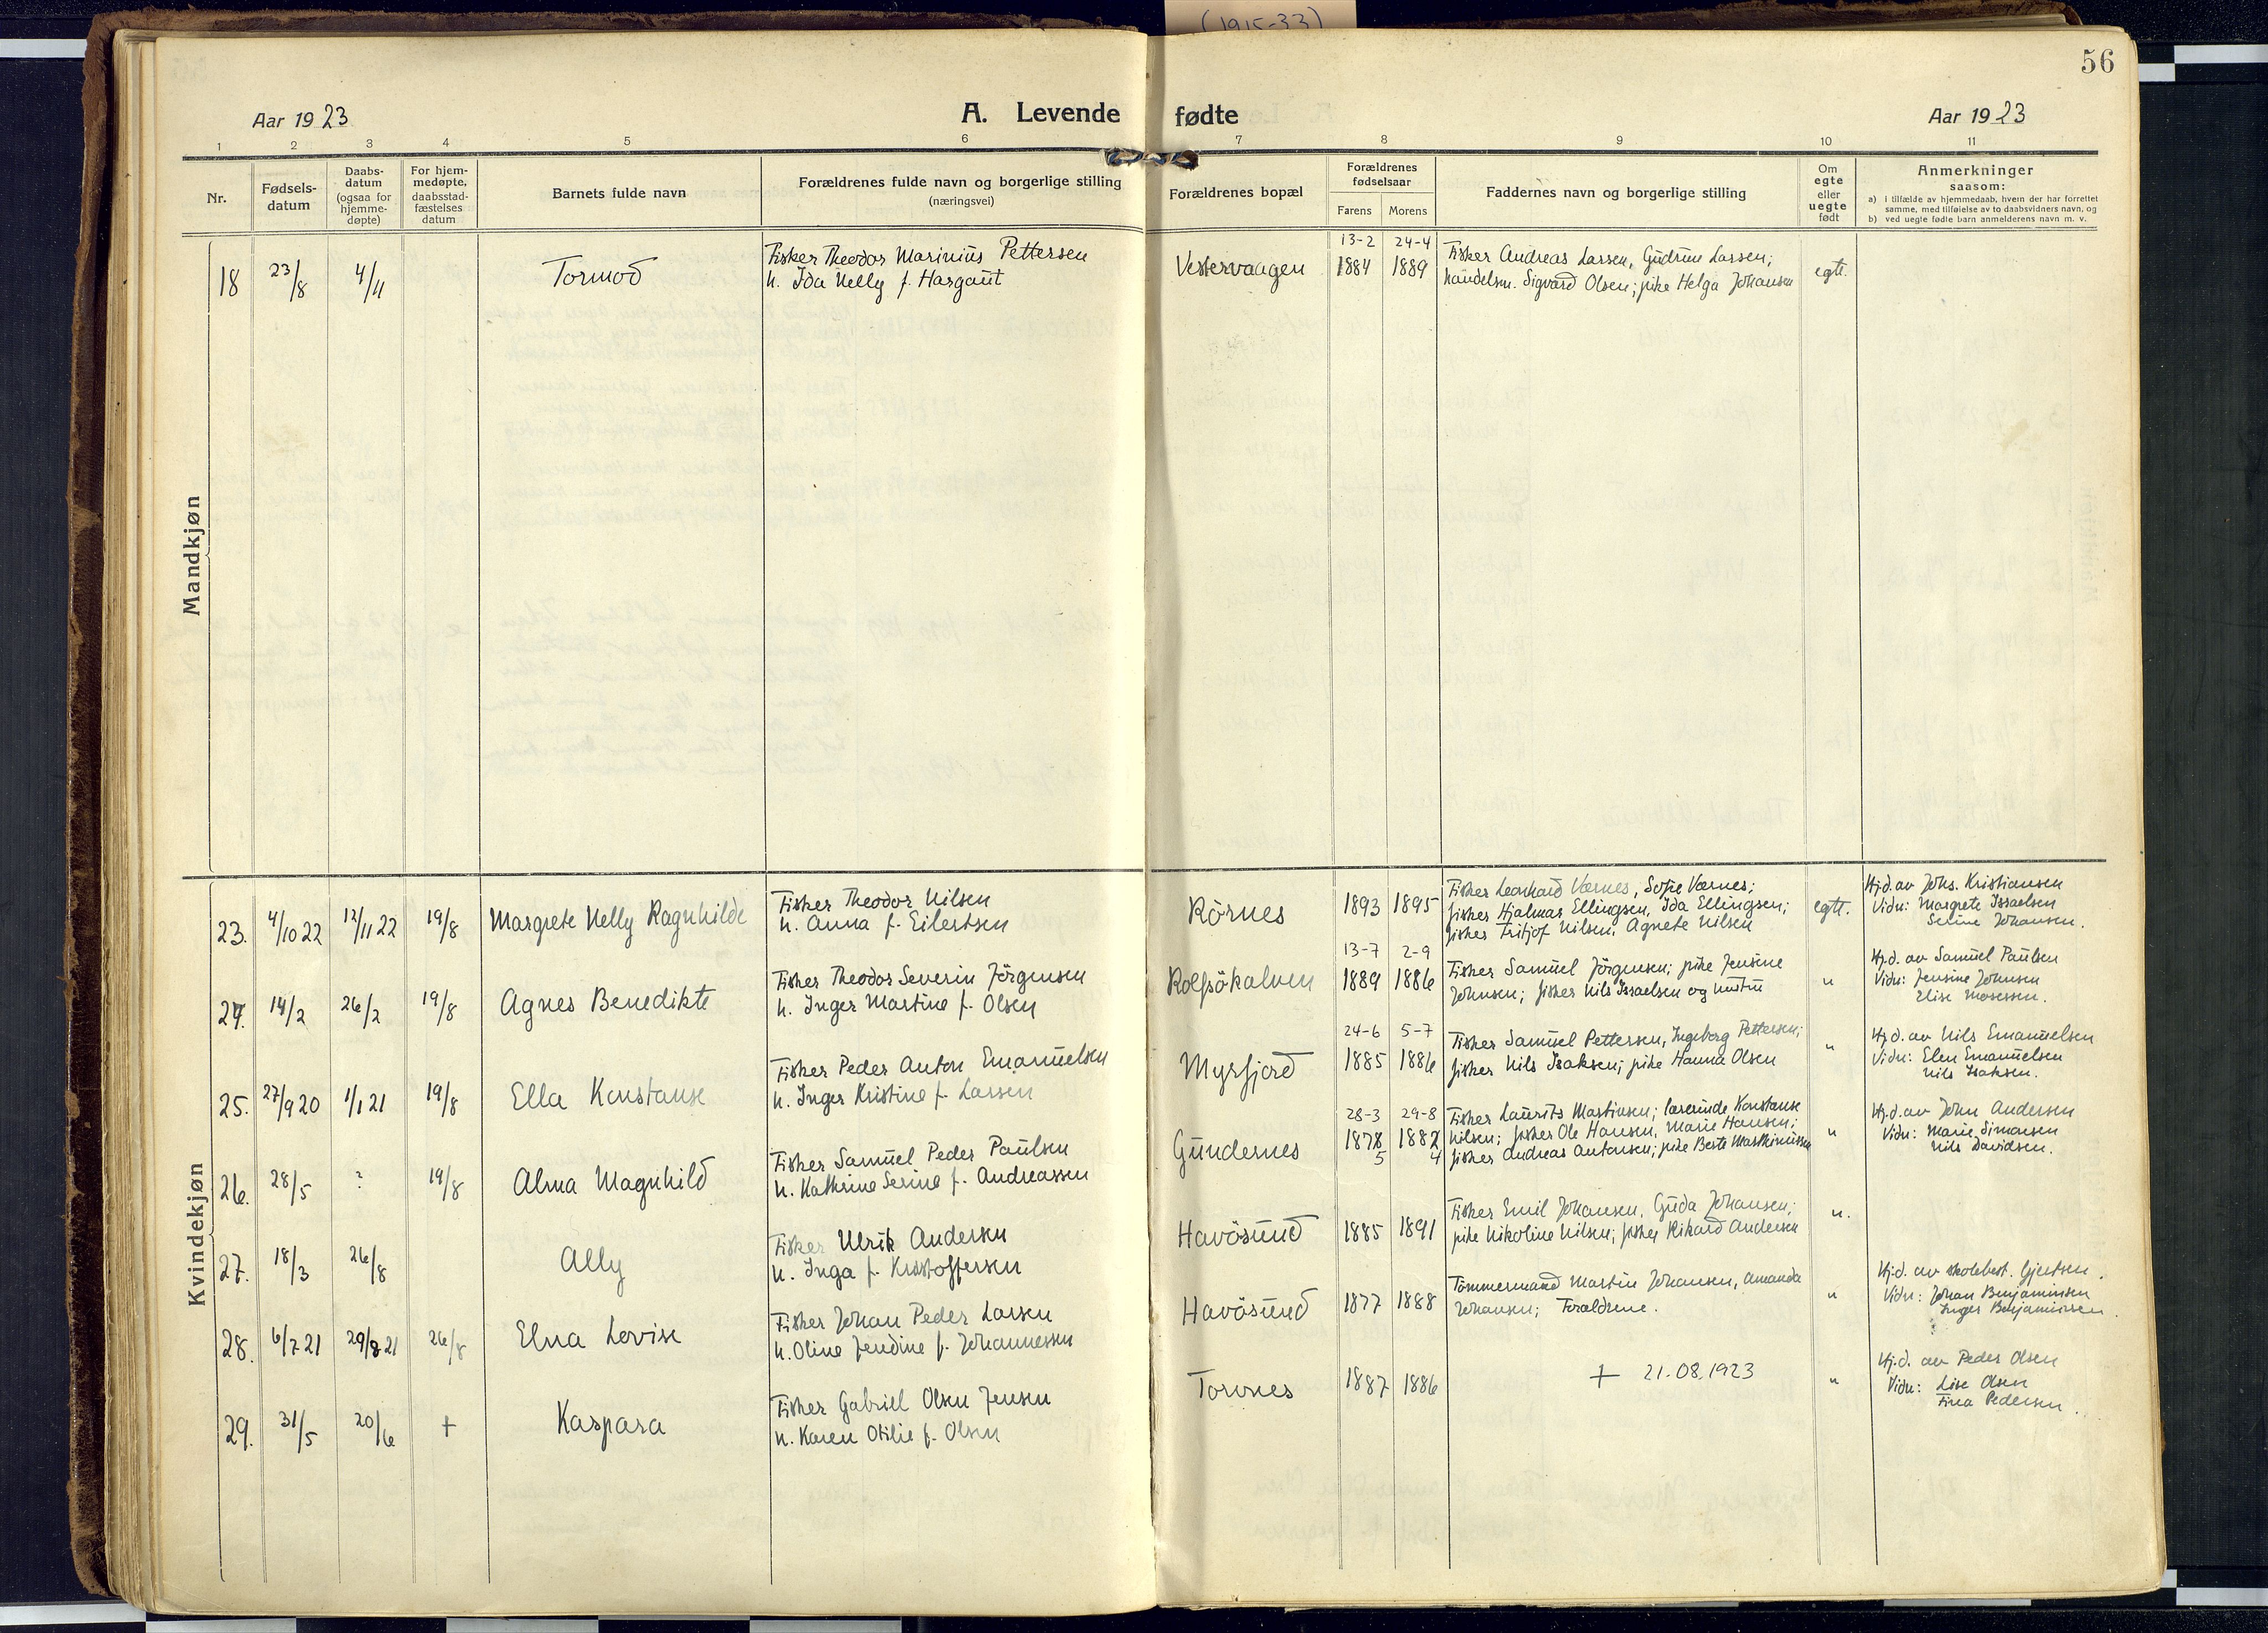 (1915-33)
56
Aar 1923
A. Levende fødte
Aar 1923
1 2 3 4 5 6 7 8 9 10 11
Nr.
Fødsels-
datum
Daabs-
datum
(ogsaa for
hjemme-
døpte)
For hjem-
medøpte,
daabsstad-
fæstelses
datum
Barnets fulde navn
Forældrenes fulde navn og borgerlige stilling
(næringsvei)
Forældrenes bopæl
Forældrenes
fødselsaar
Farens Morens
Faddernes navn og borgerlige stilling
Om
egte
eller
uegte
født
Anmerkninger
saasom:
a) i tilfælde av hjemmedaab, hvem der har forrettet
samme, med tilføielse av to daabsvidners navn, og
b) ved uegte fødte barn anmelderens navn m. v.
Mandkjøn
18 23/8 4/11 Tormod
Fisker Theodor Marinius Pettersen
h. Ida Nelly f. Hargaut
Vestervaagen
13-2 24-4
1884 1889
Fisker Andreas Larsen, Gudrun Larsen;
handelsm. Sigvard Olsen; pike Helga Johansen
egte.
Kvindekjøn
23. 4/10 22 12/11 22 19/8 Margrete Nelly Ragnhilde
Fisker Theodor Nilsen
h. Anna f. Eilertsen
Rörnes
1893 1895
Fisker Leonhard Værnes, Sofie Værnes;
fisker Hjalmar Ellingsen, Ida Ellingsen;
fisker Fritjof Nilsen, Agnete Nilsen
egte.
Hj.d. av Johs. Kristiansen
Vidn: Margrete Issaelsen
Serine Johansen.
24. 14/2 26/2 19/8 Agnes Benedikte
Fisker Theodor Severin Jörgensen
h. Inger Martine f. Olsen
Rolfsökalven
13-7 2-9
1889 1886
Fisker Samuel Jörgensen; pike Jensine
Johnsen; fisker Nils Israelsen og hustru
"
Hj.d. av Samuel Paulsen
Vidn: Jensine Johnsen
Elise Mosessen.
25. 27/9 20 1/1 21 19/8 Ella Konstanse
Fisker Peder Anton Emanuelsen
h. Inger Kristine f. Larsen
Myrfjord
24-6 5-7
1885 1886
Fisker Samuel Pettersen, Ingeborg Pettersen;
fisker Nils Isaksen; pike Hanna Olsen
"
Hj.d. av Nils Emanuelsen
Vidn: Elen Emanuelsen
Nils Isaksen.
26. 28/5 ? 19/8 Alma Magnhild
Fisker Samuel Peder Paulsen
h. Kathrine Serine f. Andreassen
Gundernes
28-3 29-8
1878 1882
5 4
Fisker Laurits Martinsen; lærerinde Konstanse
Nilsen; fisker Ole Hansen, Marie Hansen;
fisker Andreas Antonsen; pike Berte
"
Hj.d. av John Andersen
Vidn: Marie Simonsen
Nils Davidsen.
27. 18/3 26/8 Ally
Fisker Ulrik Andersen
h. Inga f. Kristoffersen
Havösund
1885 1891
Fisker Emil Johansen, Guda Johansen;
pike Nikoline Nilsen; fisker Rikard Andersen
"
28. 6/7 21 29/8 21 26/8 Elna Lovise
Fisker Johan Peder Larsen
h. Oline Jendine f. Johannessen
Havösund
1877 1888
Tömmermand Martin Johansen, Amanda
Johansen; Forældrene.
"
Hj.d. av skolebest. Gjertsen.
Vidn: Johan Benjaminsen
Inger Benjaminsen.
29. 31/5 20/6 + Kaspara
Fisker Gabriel Olsen Jensen
h. Karen Otilie f. Olsen
Torvnes
1887 1886
+ 21.08.1923
"
Hj.d. av Peder Olsen
Vidn: Lise Olsen
Fina Pedersen.